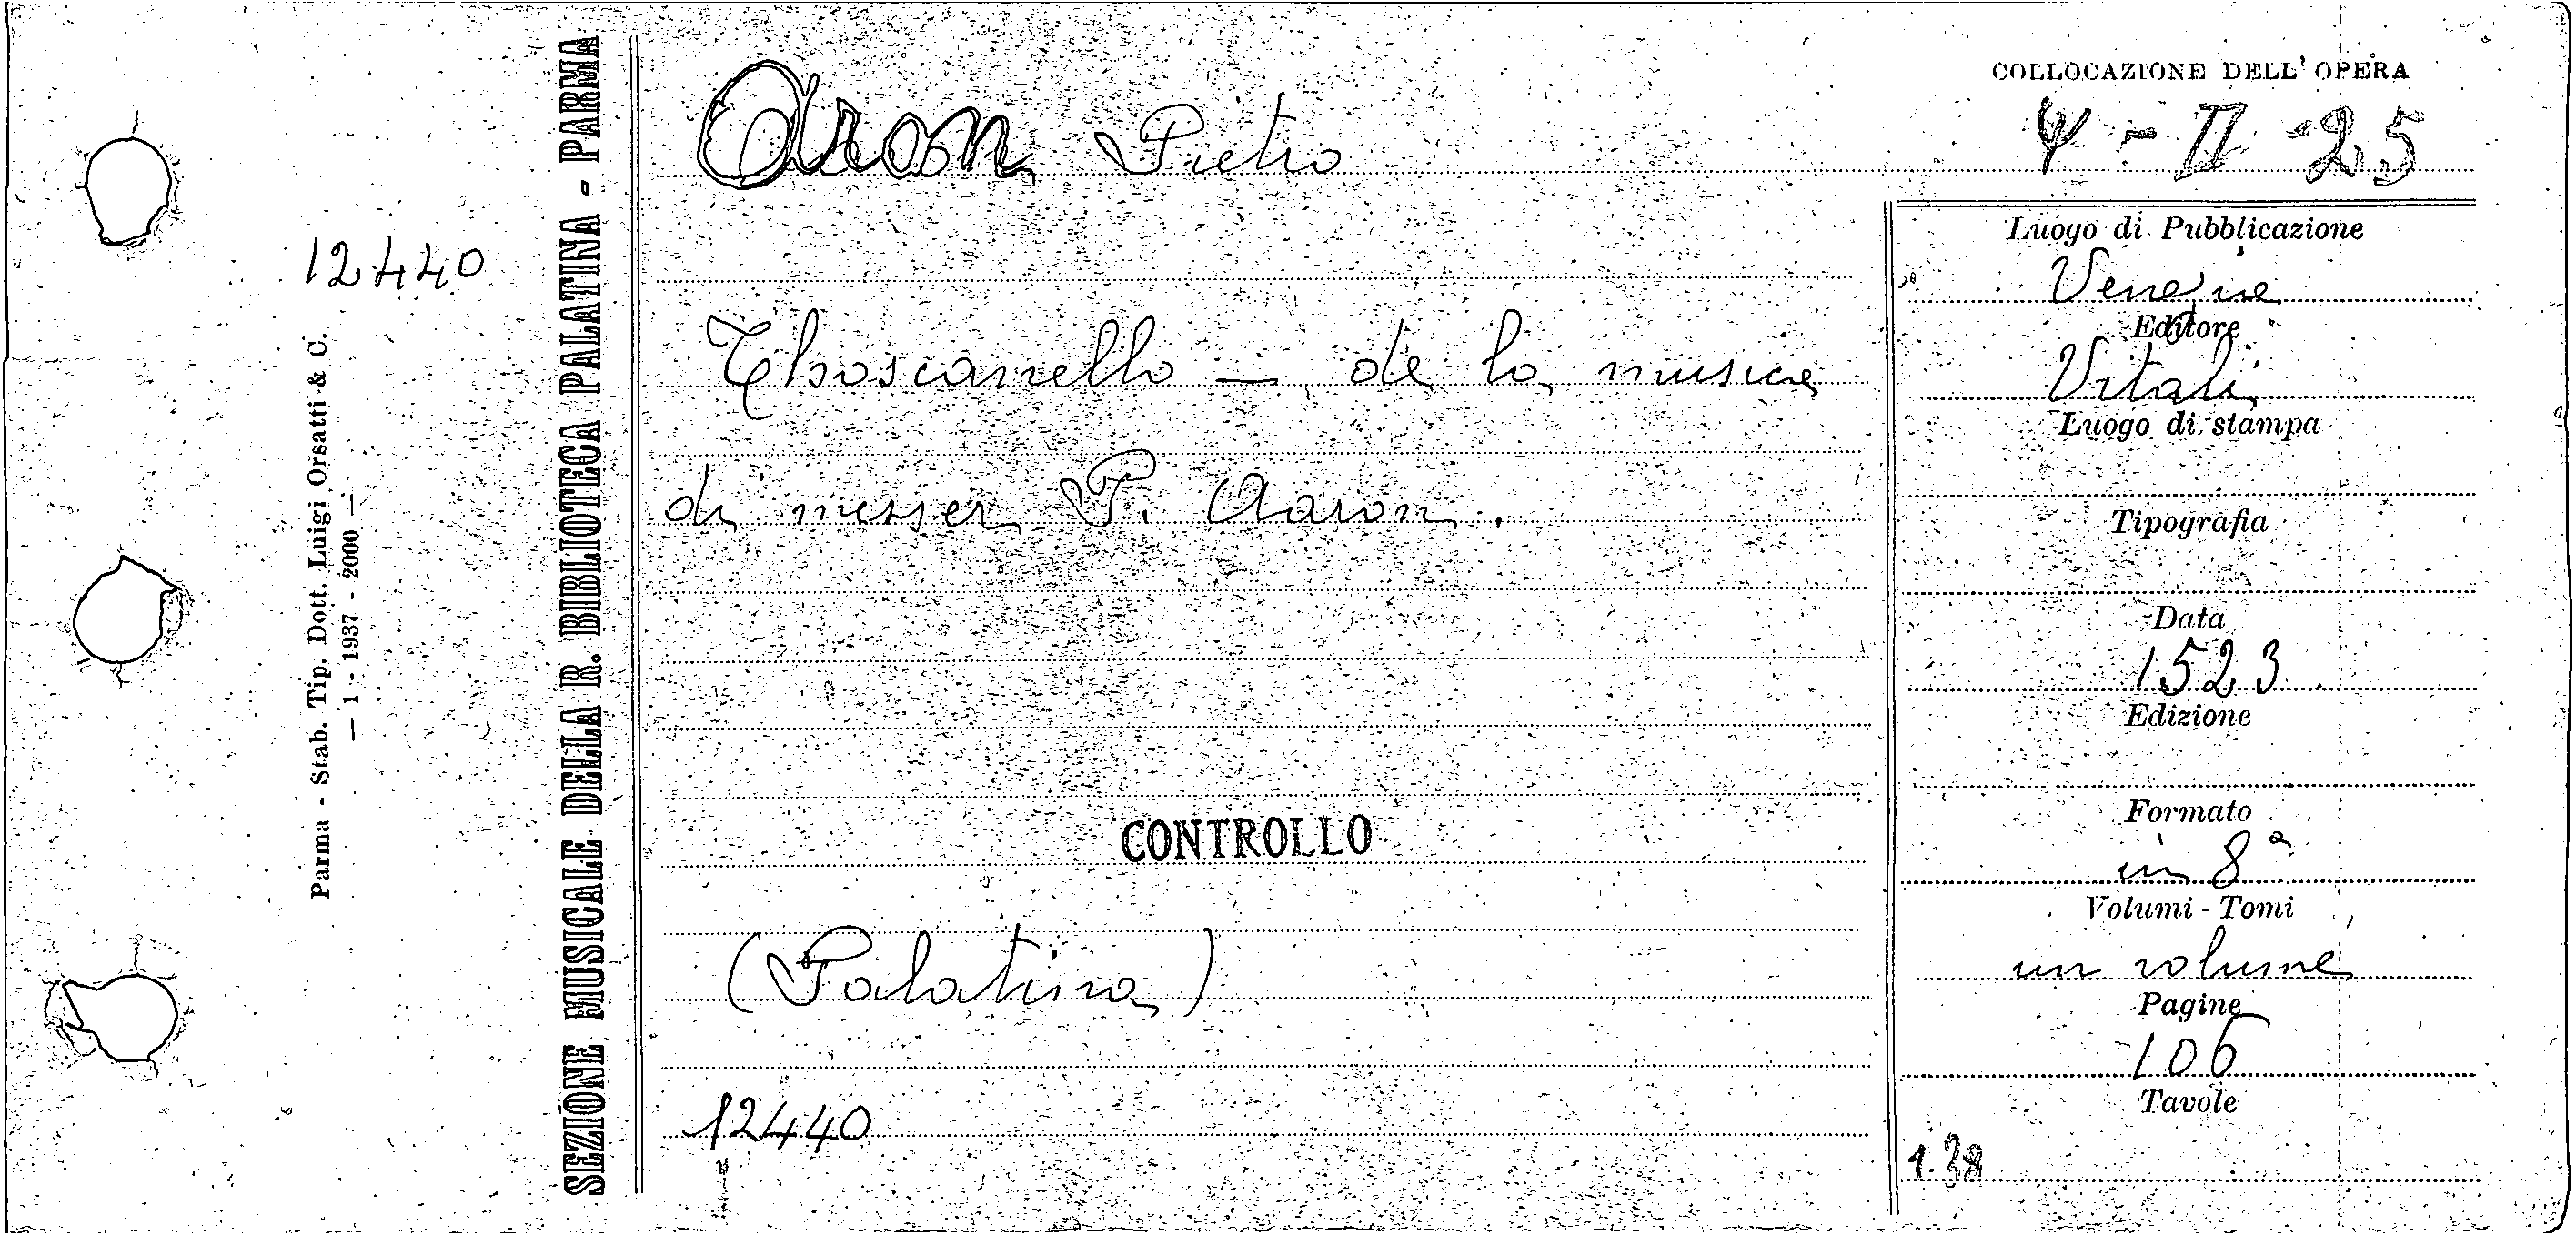 COLLOCAZIONE DELL' OPERA
Aron Pietro
Ψ - II - 25
12440
Parma - Stab. Tip. Dott. Luigi Orsatti & C.
— 1 - 1937 - 2000 —
SEZIONE MUSICALE DELLA R. BIBLIOTECA PALATINA - PARMA
Thoscanello — de la musica
di messer P. Aaron.
CONTROLLO
(Palatina)
12440
Luogo di Pubblicazione
Venezia
Editore
Vitali
Luogo di stampa
Tipografia
Data
1523
Edizione
Formato
in 8°
Volumi - Tomi
un volume
Pagine
106
Tavole
1.38